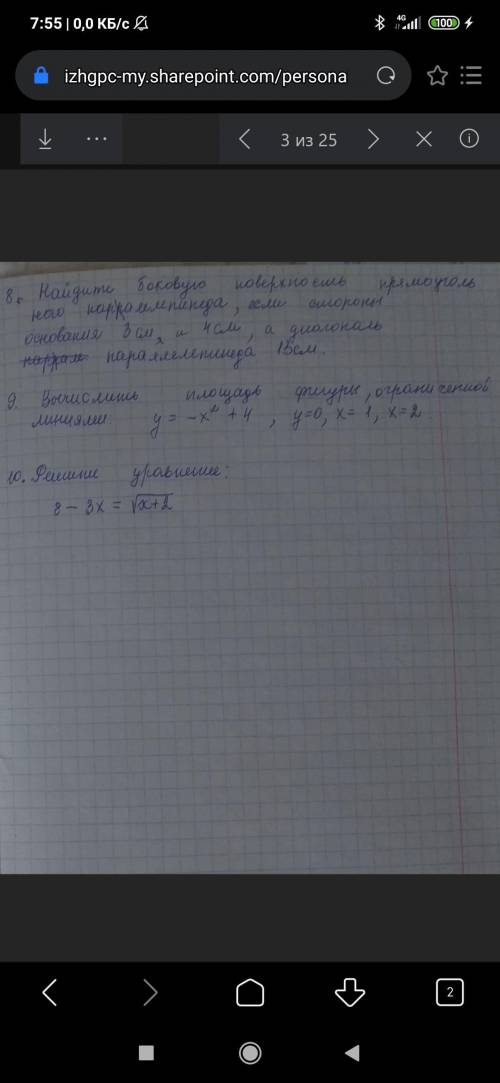 7:55 | 0,0 КБ/с
4G
100
izhgpc-my.sharepoint.com/persona
3 из 25
8. Найдите боковую поверхность прямоуголь
ного паррамелепипеда, если стороны
основания 3см и 4см, а диагональ
параллелепипеда 13см.
9. Вычислить площадь фигуры, ограниченной
линиями: y = -x² + 4 , y=0, x=1, x=2
10. Решите уравнение:
8 - 3x = √x+2
2